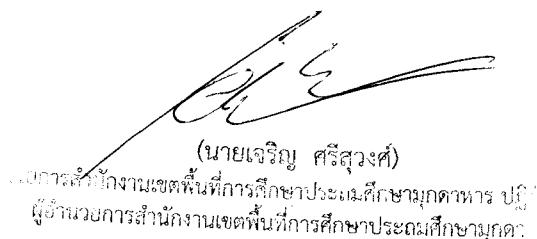 (นายเจริญ ศรีสุวงศ์)
สำนักงานเขตพื้นที่การศึกษาประถมศึกษามุกดาหาร
ผู้อำนวยการสำนักงานเขตพื้นที่การศึกษาประถมศึกษามุกดา